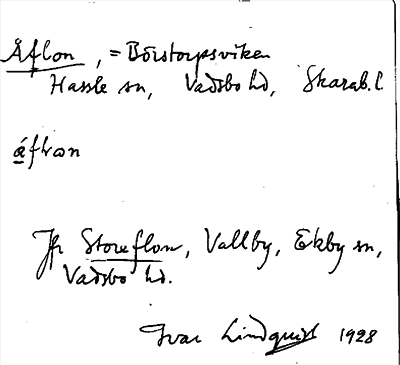 Åflon, = Börstorpsviken
Hassle sn, Vadsbo hd, Skarab. l
Jfr Storeflon, Vallby, Ekby sn,
Vadsbo hd.
Ivar Lindquist 1928